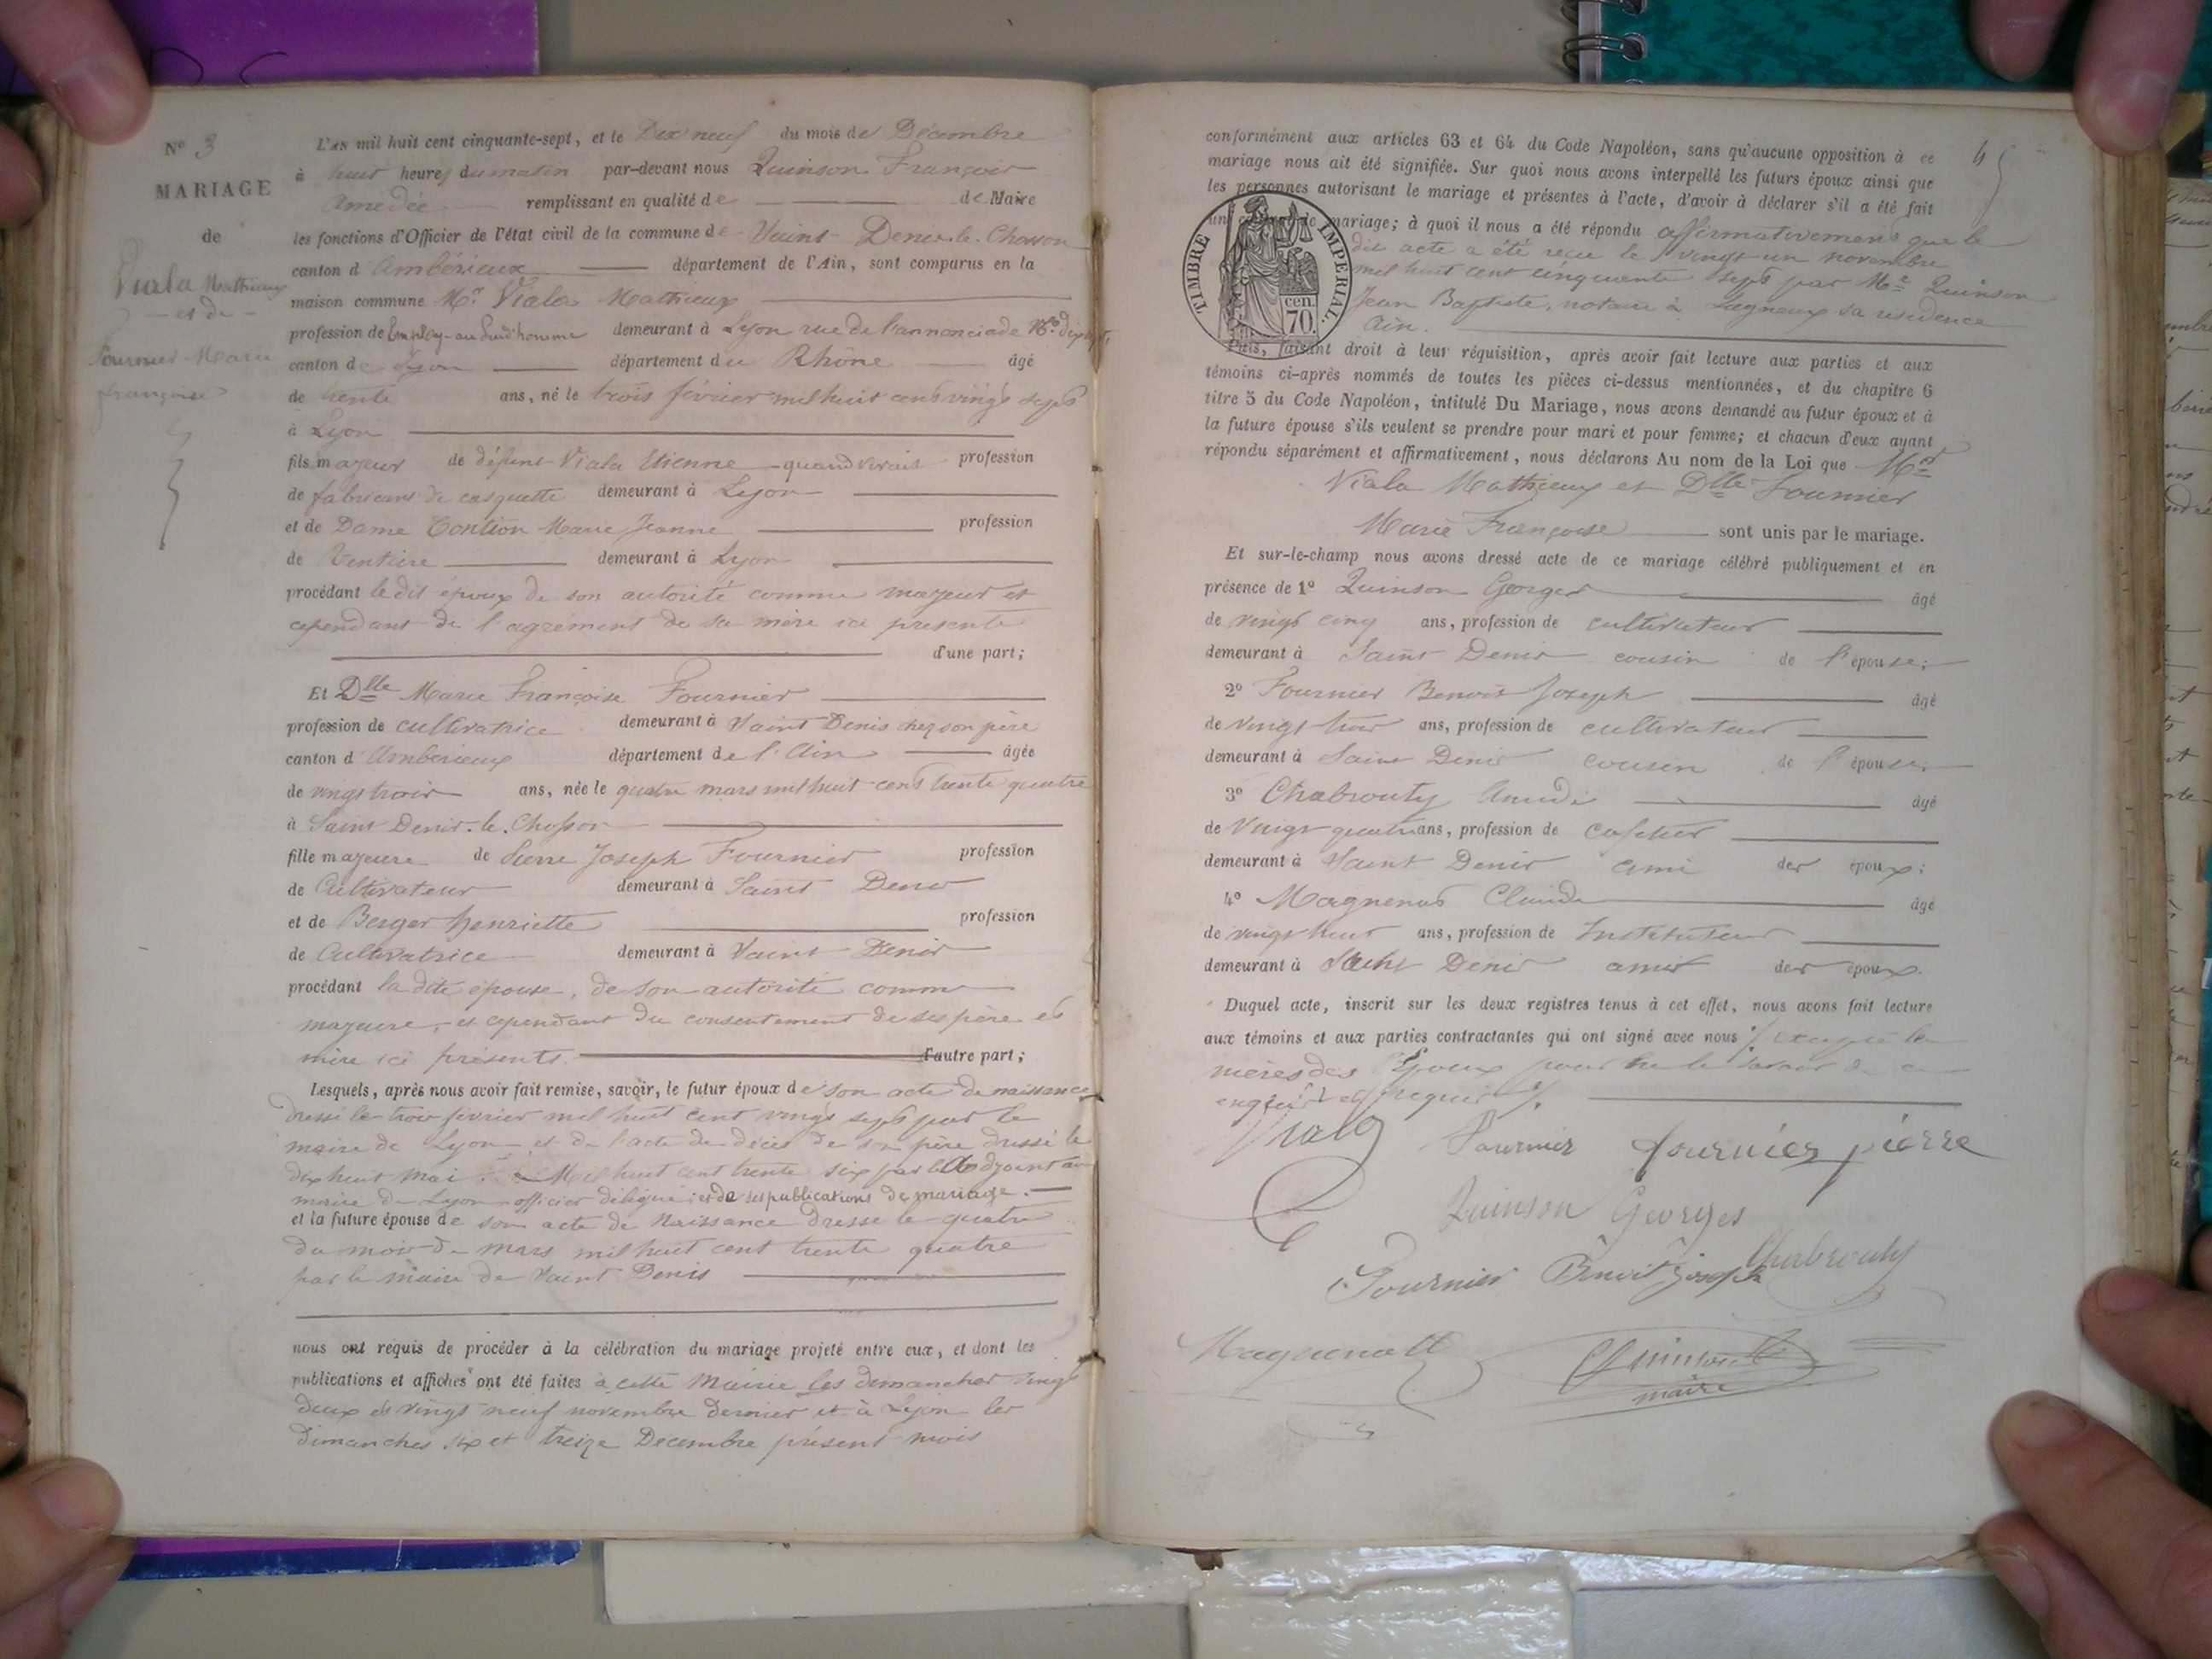 Nº 3
MARIAGE
de
Viala Mathieux
- et de -
Fournier Marie
françoise
L'an mil huit cent cinquante-sept, et le Dix neuf du mois de Décembre
à huit heures du matin par-devant nous Quinson François
Amédée remplissant en qualité de de Maire
les fonctions d'Officier de l'état civil de la commune de Saint-Denis-le-Chosson
canton d'Ambérieux département de l'Ain, sont comparus en la
maison commune Mr Viala Mathieux
profession de demeurant à Lyon rue de l'annonciade No
canton de Lyon département du Rhône âgé
de trente ans, né le trois février mil huit cent vingt sept
à Lyon
fils majeur de défunt Viala Etienne quand vivait profession
de fabricant de casquette demeurant à Lyon
et de Dame Marie Jeanne profession
de Rentière demeurant à Lyon
procédant le dit époux de son autorité comme majeur et
cependant de l'agrément de sa mère ici présente
d'une part;
Et Dlle Marie Françoise Fournier
profession de cultivatrice demeurant à Saint Denis chez son père
canton d'Ambérieux département de l'Ain âgée
de vingt trois ans, née le quatre mars mil huit cent trente quatre
à Saint Denis-le-Chosson
fille majeure de Pierre Joseph Fournier profession
de Cultivateur demeurant à Saint Denis
et de Berger henriette profession
de Cultivatrice demeurant à Saint Denis
procédant la dite épouse, de son autorité comme
majeure, et cependant du consentement de ses père et
mère ici présents. d'autre part;
Lesquels, après nous avoir fait remise, savoir, le futur époux de son acte de naissance
dressé le trois février mil huit cent vingt sept par le
maire de Lyon et de l'acte de décès de son père dressé le
dix huit mai mil huit cent trente six par l'adjoint au
maire de Lyon officier délégué et de ses publications de mariage.
et la future épouse de son acte de Naissance dressé le quatre
du mois de mars mil huit cent trente quatre
par le maire de Saint Denis
nous ont requis de procéder à la célébration du mariage projeté entre eux, et dont les
publications et affiches ont été faites à cette Mairie les dimanches vingt
deux et vingt neuf novembre dernier et à Lyon les
dimanches six et treize Décembre présent mois
conformément aux articles 63 et 64 du Code Napoléon, sans qu'aucune opposition à ce
mariage nous ait été signifiée. Sur quoi nous avons interpellé les futurs époux ainsi que
les personnes autorisant le mariage et présentes à l'acte, d'avoir à déclarer s'il a été fait
un de mariage; à quoi il nous a été répondu affirmativement que le
dit acte a été reçu le vingt un novembre
mil huit cent cinquante sept par Me Quinson
Jean Baptiste, notaire à Lagneux sa résidence
Ain.
TIMBRE IMPERIAL.
cen.
70.
Puis, faisant droit à leur réquisition, après avoir fait lecture aux parties et aux
témoins ci-après nommés de toutes les pièces ci-dessus mentionnées, et du chapitre 6
titre 5 du Code Napoléon, intitulé Du Mariage, nous avons demandé au futur époux et à
la future épouse s'ils veulent se prendre pour mari et pour femme; et chacun d'eux ayant
répondu séparément et affirmativement, nous déclarons Au nom de la Loi que Mr
Viala Mathieux et Dlle Fournier
Marie Françoise sont unis par le mariage.
Et sur-le-champ nous avons dressé acte de ce mariage célébré publiquement et en
présence de 1º Quinson Georges âgé
de vingt cinq ans, profession de cultivateur
demeurant à Saint Denis cousin de l'épouse;
2º Fournier Benoit Joseph âgé
de vingt trois ans, profession de cultivateur
demeurant à Saint Denis cousin de l'épouse;
3º Chabrouty Amédé âgé
de Vingt quatre ans, profession de cafetier
demeurant à Saint Denis ami des époux;
4º Magnenat Claude âgé
de vingt huit ans, profession de Instituteur
demeurant à Saint Denis ami des époux.
Duquel acte, inscrit sur les deux registres tenus à cet effet, nous avons fait lecture
aux témoins et aux parties contractantes qui ont signé avec nous excepté les
mères des Epoux pour ne le savoir de ce
enquis et requis
Viala Fournier fournier pierre
Quinson Georges
Fournier Benoit Joseph Chabrouty
Magnenatt
maire